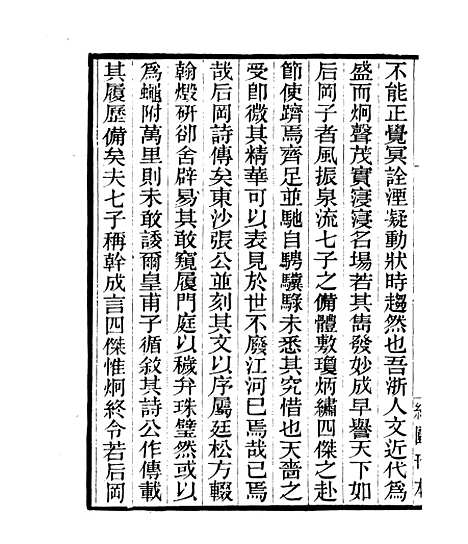 不能正覺冥詮湮凝動狀時趨然也吾浙人文近代為
盛而炯聲茂實寖寖名場若其雋發妙成早譽天下如
后岡子者風振泉流七子之備體敷瓊炳繡四傑之赴
節使躋焉齊足並馳自騁驥騄未悉其究惜也天嗇之
受卽微其精華可以表見於世不廢江河巳焉哉巳焉
哉后岡詩傳矣東沙張公並刻其文以序屬廷松方輟
翰燬研卻舍辟易其敢窺履門庭以穢弁珠璧然或以
為蠅附萬里則未敢諉爾皇甫子循敘其詩公作傳載
其履歷備矣夫七子稱幹成言四傑惟炯終令若后岡